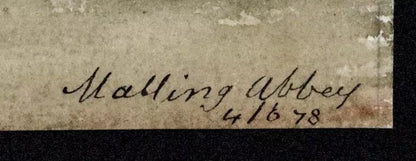 Malling Abbey
4/6 78